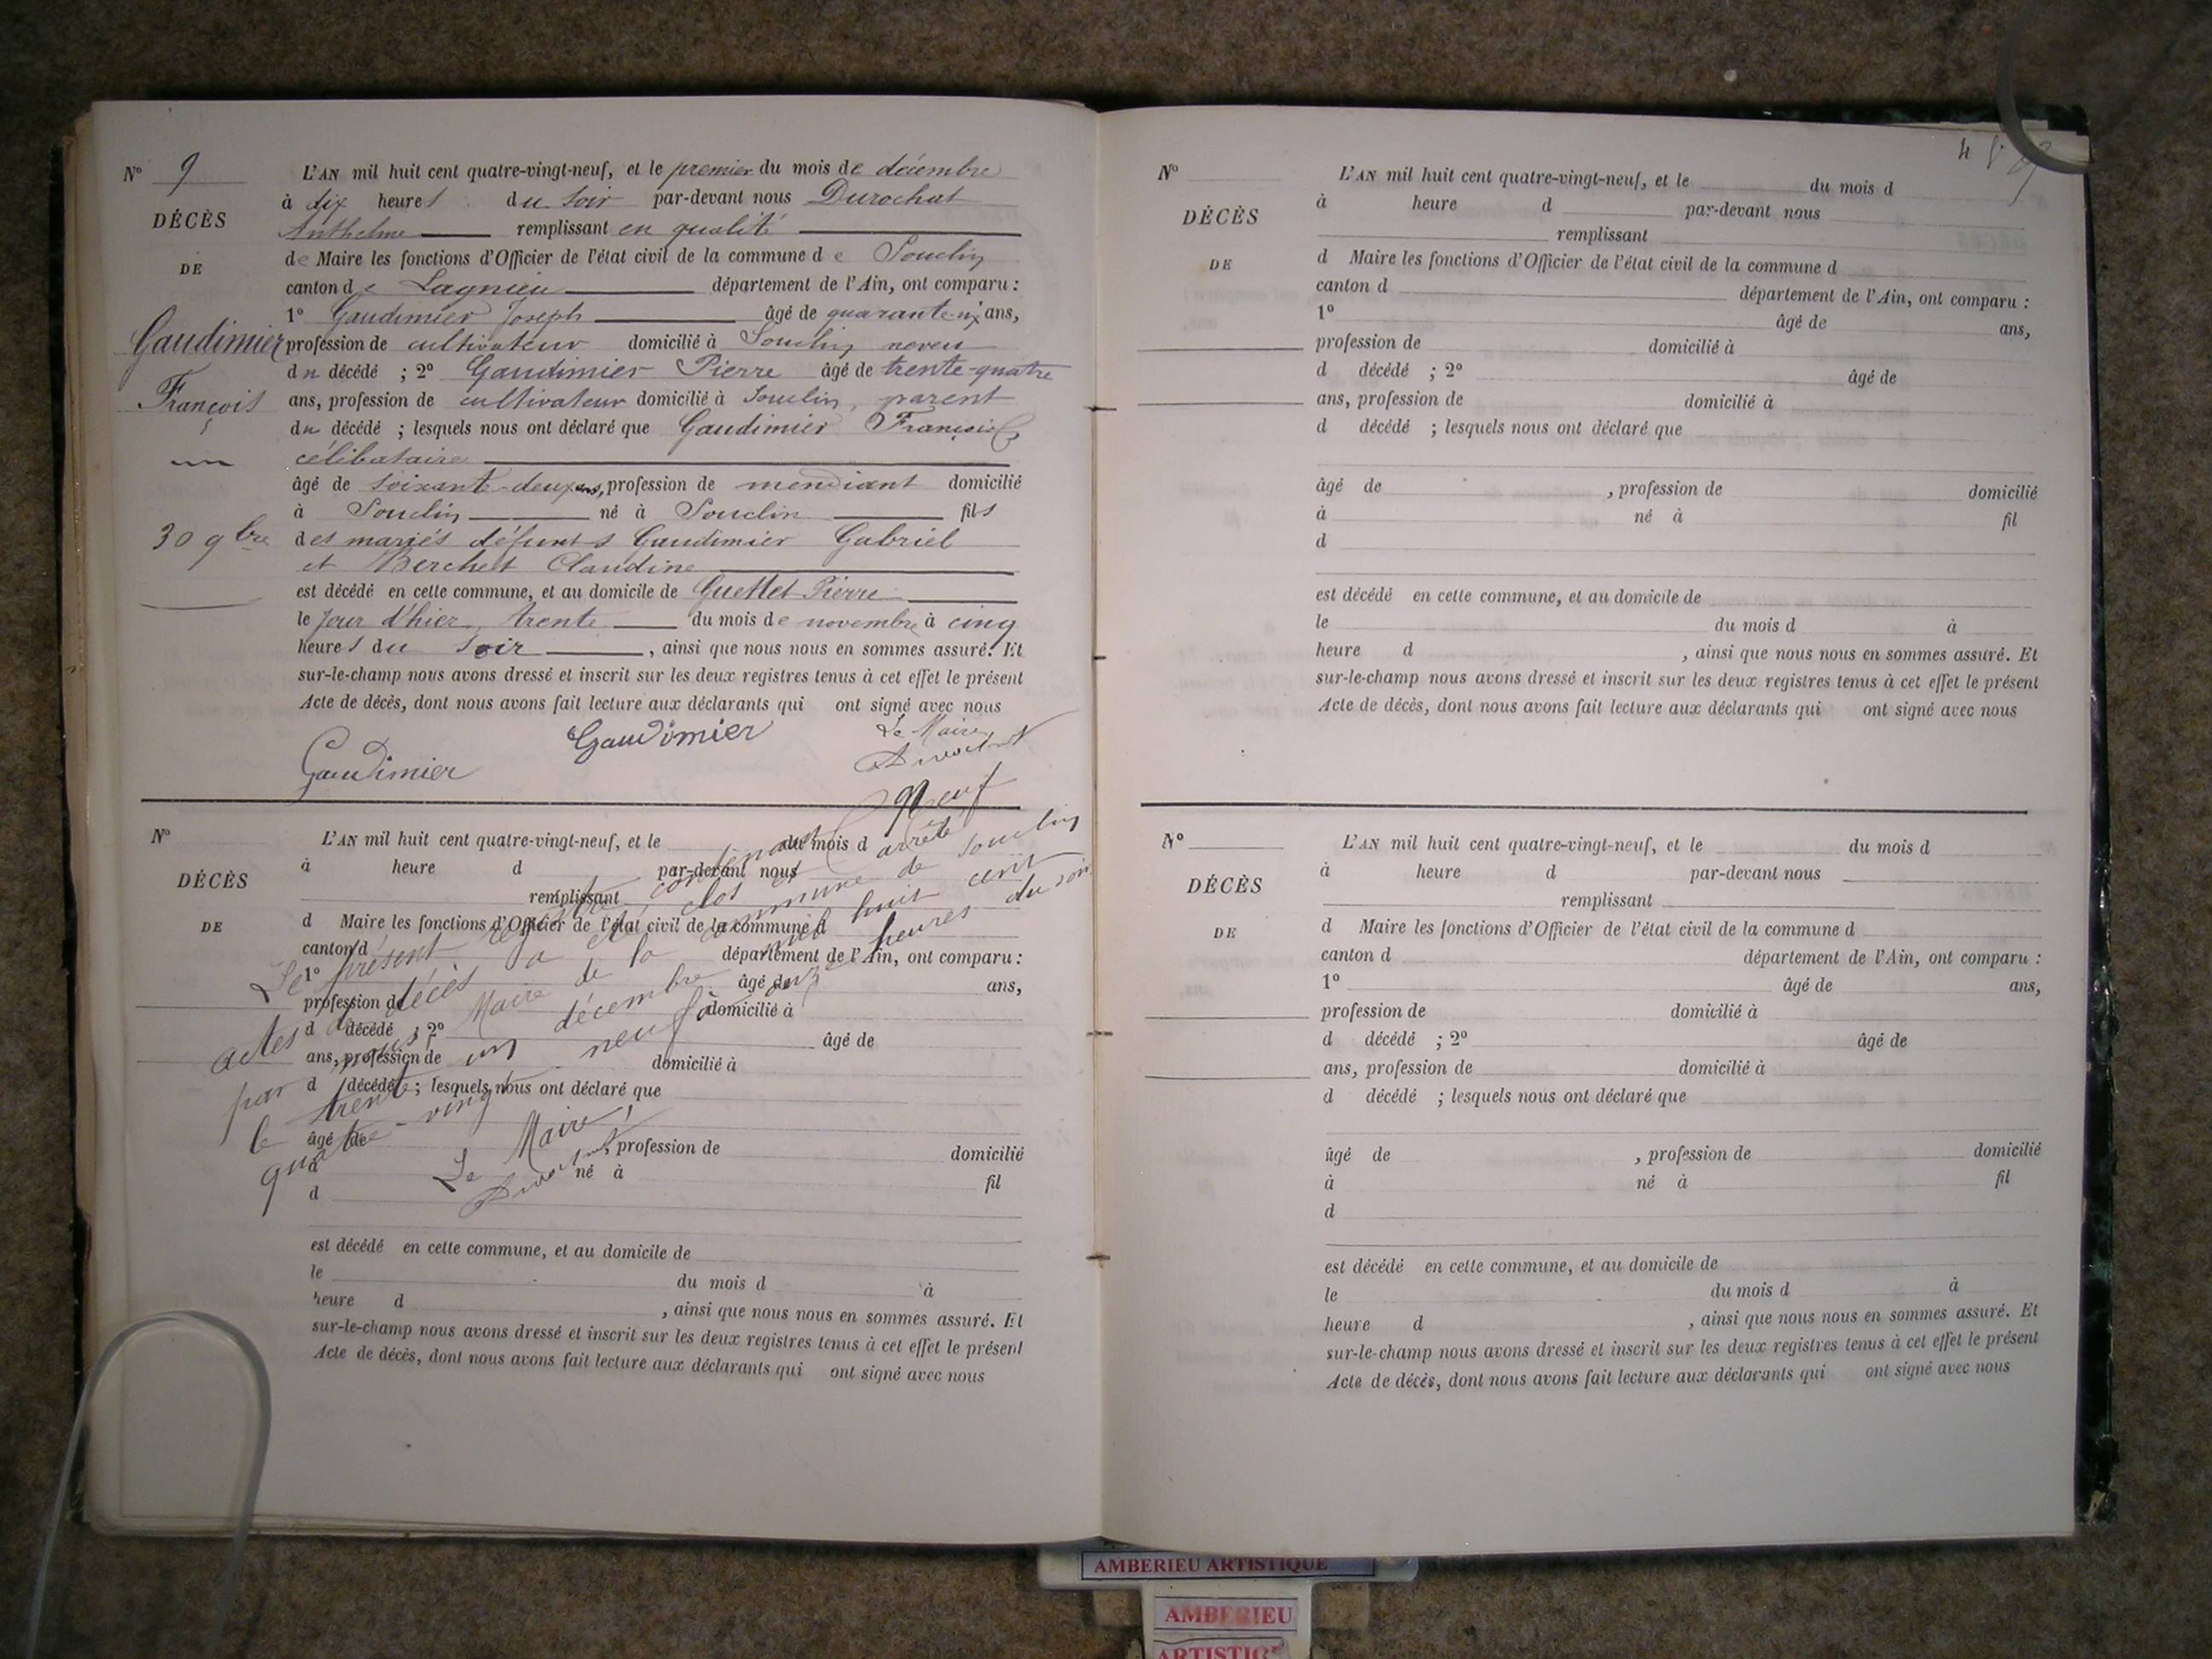 N° 9
DÉCÈS
DE
Gaudimier
François
30 9bre
L'AN mil huit cent quatre-vingt-neuf, et le premier du mois de décembre
à dix heures du soir par-devant nous Durochat
Anthelme remplissant en qualité
de Maire les fonctions d'Officier de l'état civil de la commune de Souclin
canton de Lagnieu département de l'Ain, ont comparu :
1° Gaudimier Joseph âgé de quarante ans,
profession de cultivateur domicilié à Souclin neveu
du décédé ; 2° Gaudimier Pierre âgé de trente-quatre
ans, profession de cultivateur domicilié à Souclin, parent
du décédé ; lesquels nous ont déclaré que Gaudimier François
célibataire
âgé de soixante-deux ans, profession de mendiant domicilié
à Souclin né à Souclin fils
des mariés défunts Gaudimier Gabriel
et Berchet Claudine
est décédé en cette commune, et au domicile de Guettet Pierre
le jour d'hier, trente du mois de novembre à cinq
heures du soir, ainsi que nous nous en sommes assuré. Et
sur-le-champ nous avons dressé et inscrit sur les deux registres tenus à cet effet le présent
Acte de décès, dont nous avons fait lecture aux déclarants qui ont signé avec nous
Le Maire
Gaudimier
Durochat
Gaudimier
N°
DÉCÈS
DE
L'AN mil huit cent quatre-vingt-neuf, et le du mois d
à heure d par-devant nous
remplissant
d Maire les fonctions d'Officier de l'état civil de la commune d
canton d département de l'Ain, ont comparu :
1° âgé de ans,
profession de domicilié à
d décédé ; 2° âgé de
ans, profession de domicilié à
d décédé ; lesquels nous ont déclaré que
âgé de , profession de domicilié
à né à fil
d
est décédé en cette commune, et au domicile de
le du mois d à
heure d , ainsi que nous nous en sommes assuré. Et
sur-le-champ nous avons dressé et inscrit sur les deux registres tenus à cet effet le présent
Acte de décès, dont nous avons fait lecture aux déclarants qui ont signé avec nous
Le présent registre contenant neuf
actes de décès a été clos et arrêté
par nous, Maire de la commune de Souclin
le trente un décembre mil huit cent
quatre-vingt neuf à onze heures du soir
Le Maire,
Durochat
N°
DÉCÈS
DE
L'AN mil huit cent quatre-vingt-neuf, et le du mois d
à heure d par-devant nous
remplissant
d Maire les fonctions d'Officier de l'état civil de la commune d
canton d département de l'Ain, ont comparu :
1° âgé de ans,
profession de domicilié à
d décédé ; 2° âgé de
ans, profession de domicilié à
d décédé ; lesquels nous ont déclaré que
âgé de , profession de domicilié
à né à fil
d
est décédé en cette commune, et au domicile de
le du mois d à
heure d , ainsi que nous nous en sommes assuré. Et
sur-le-champ nous avons dressé et inscrit sur les deux registres tenus à cet effet le présent
Acte de décès, dont nous avons fait lecture aux déclarants qui ont signé avec nous
N°
DÉCÈS
DE
L'AN mil huit cent quatre-vingt-neuf, et le du mois d
à heure d par-devant nous
remplissant
d Maire les fonctions d'Officier de l'état civil de la commune d
canton d département de l'Ain, ont comparu :
1° âgé de ans,
profession de domicilié à
d décédé ; 2° âgé de
ans, profession de domicilié à
d décédé ; lesquels nous ont déclaré que
âgé de , profession de domicilié
à né à fil
d
est décédé en cette commune, et au domicile de
le du mois d à
heure d , ainsi que nous nous en sommes assuré. Et
sur-le-champ nous avons dressé et inscrit sur les deux registres tenus à cet effet le présent
Acte de décès, dont nous avons fait lecture aux déclarants qui ont signé avec nous
AMBERIEU ARTISTIQUE
AMBERIEU